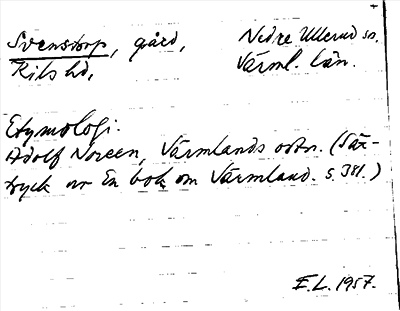 Svenstorp, gård, Nedre Ullerud sn.
Kils hd, Värml. län.
Etymologi.
Adolf Noreen, Värmlands ortn. (Sär-
tryck av En bok om Värmland. s. 381.)
E.L. 1957.